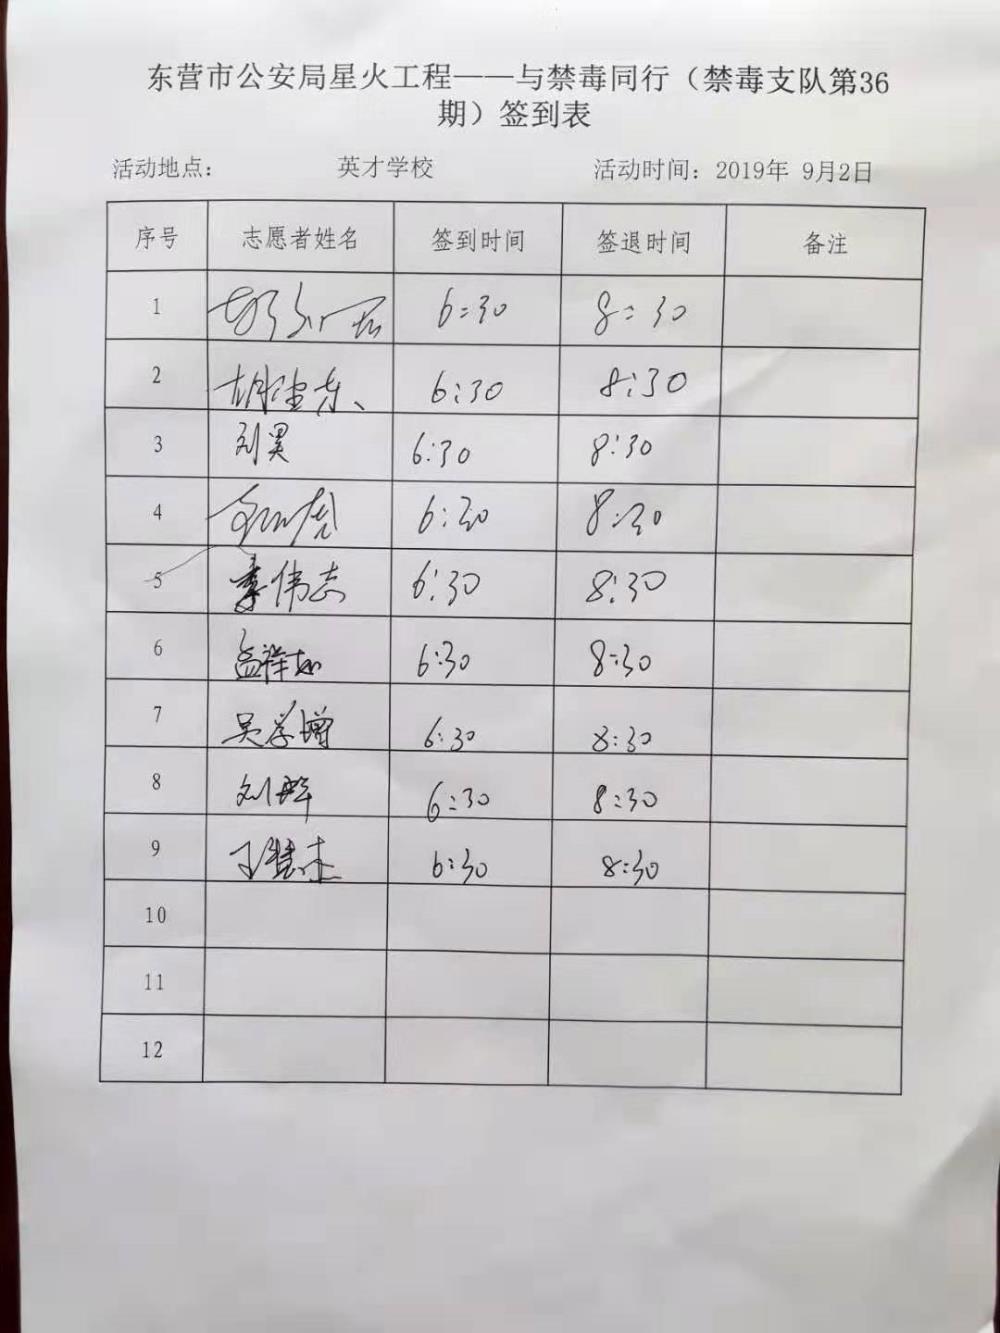 东营市公安局星火工程——与禁毒同行（禁毒支队第36
期）签到表
活动地点： 英才学校 活动时间：2019年 9月2日
序号 志愿者姓名 签到时间 签退时间 备注
1 6:30 8:30
2 6:30 8:30
3 刘昊 6:30 8:30
4 6:30 8:30
5 李伟志 6:30 8:30
6 6:30 8:30
7 吴学增 6:30 8:30
8 刘群 6:30 8:30
9 6:30 8:30
10
11
12